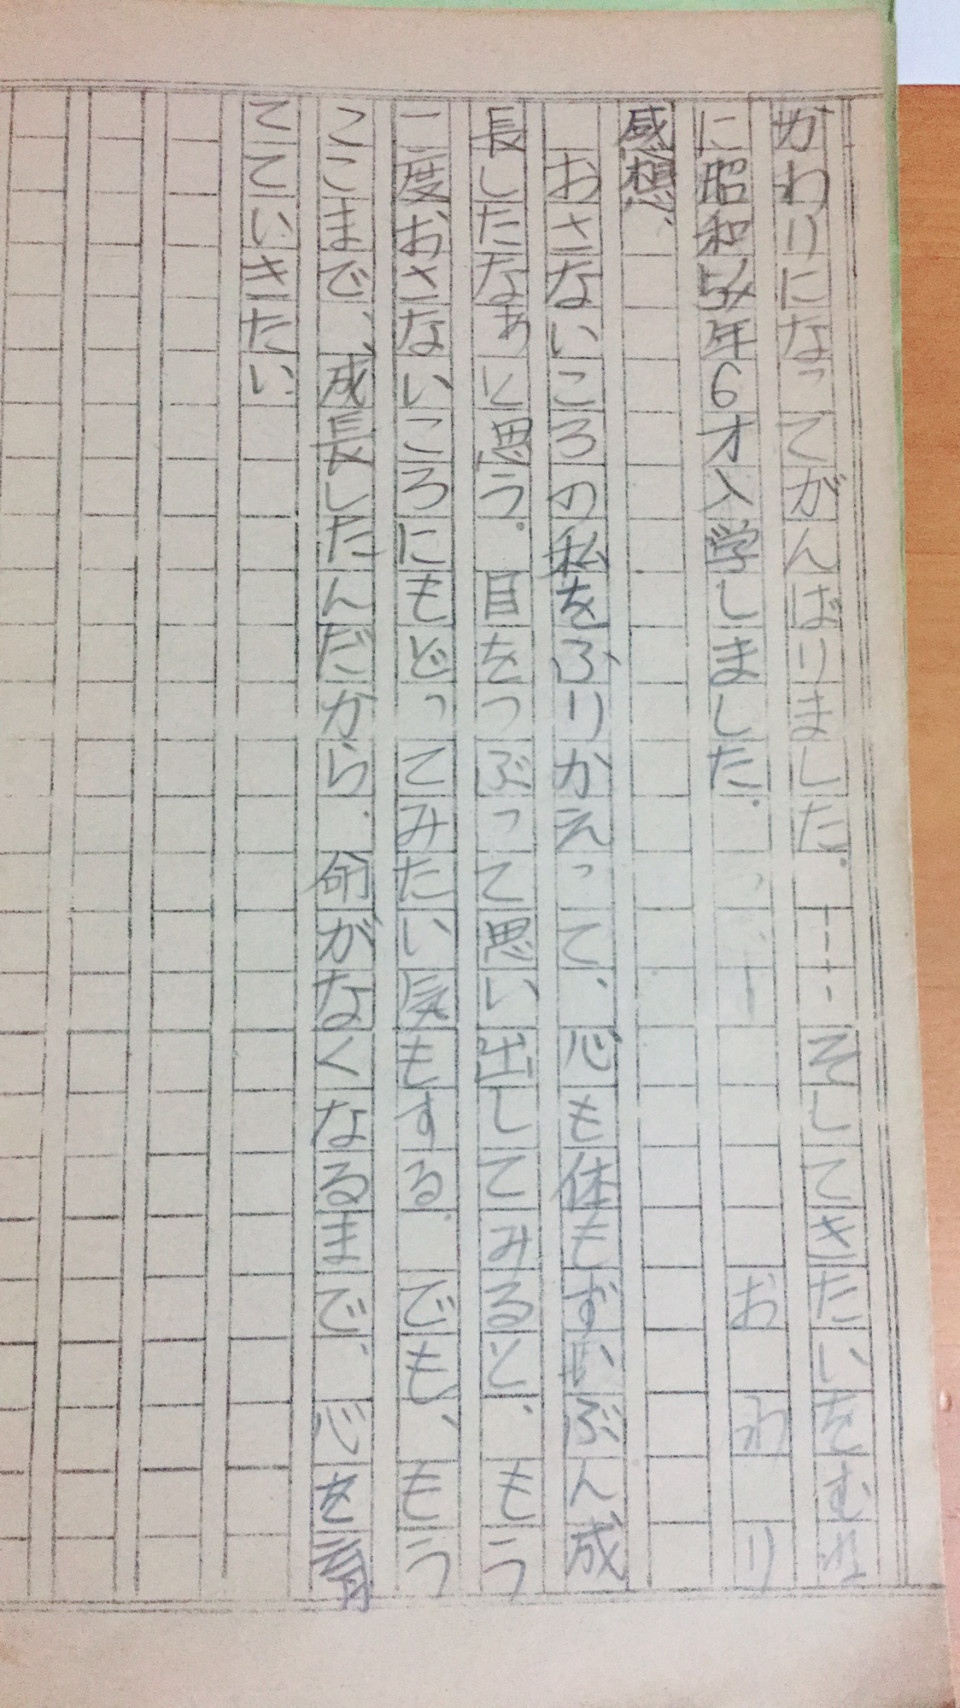 かわりになってがんばりました。‥‥そしてきたいをむね
に昭和54年6才入学しました。
おわり
感想、
おさないころの私をふりかえって、心も体もずいぶん成
長したなぁと思う。目をつぶって思い出してみると、もう
一度おさないころにもどってみたい気もする。でも、もう
ここまで、成長したんだから、命がなくなるまで、心を育
てていきたい